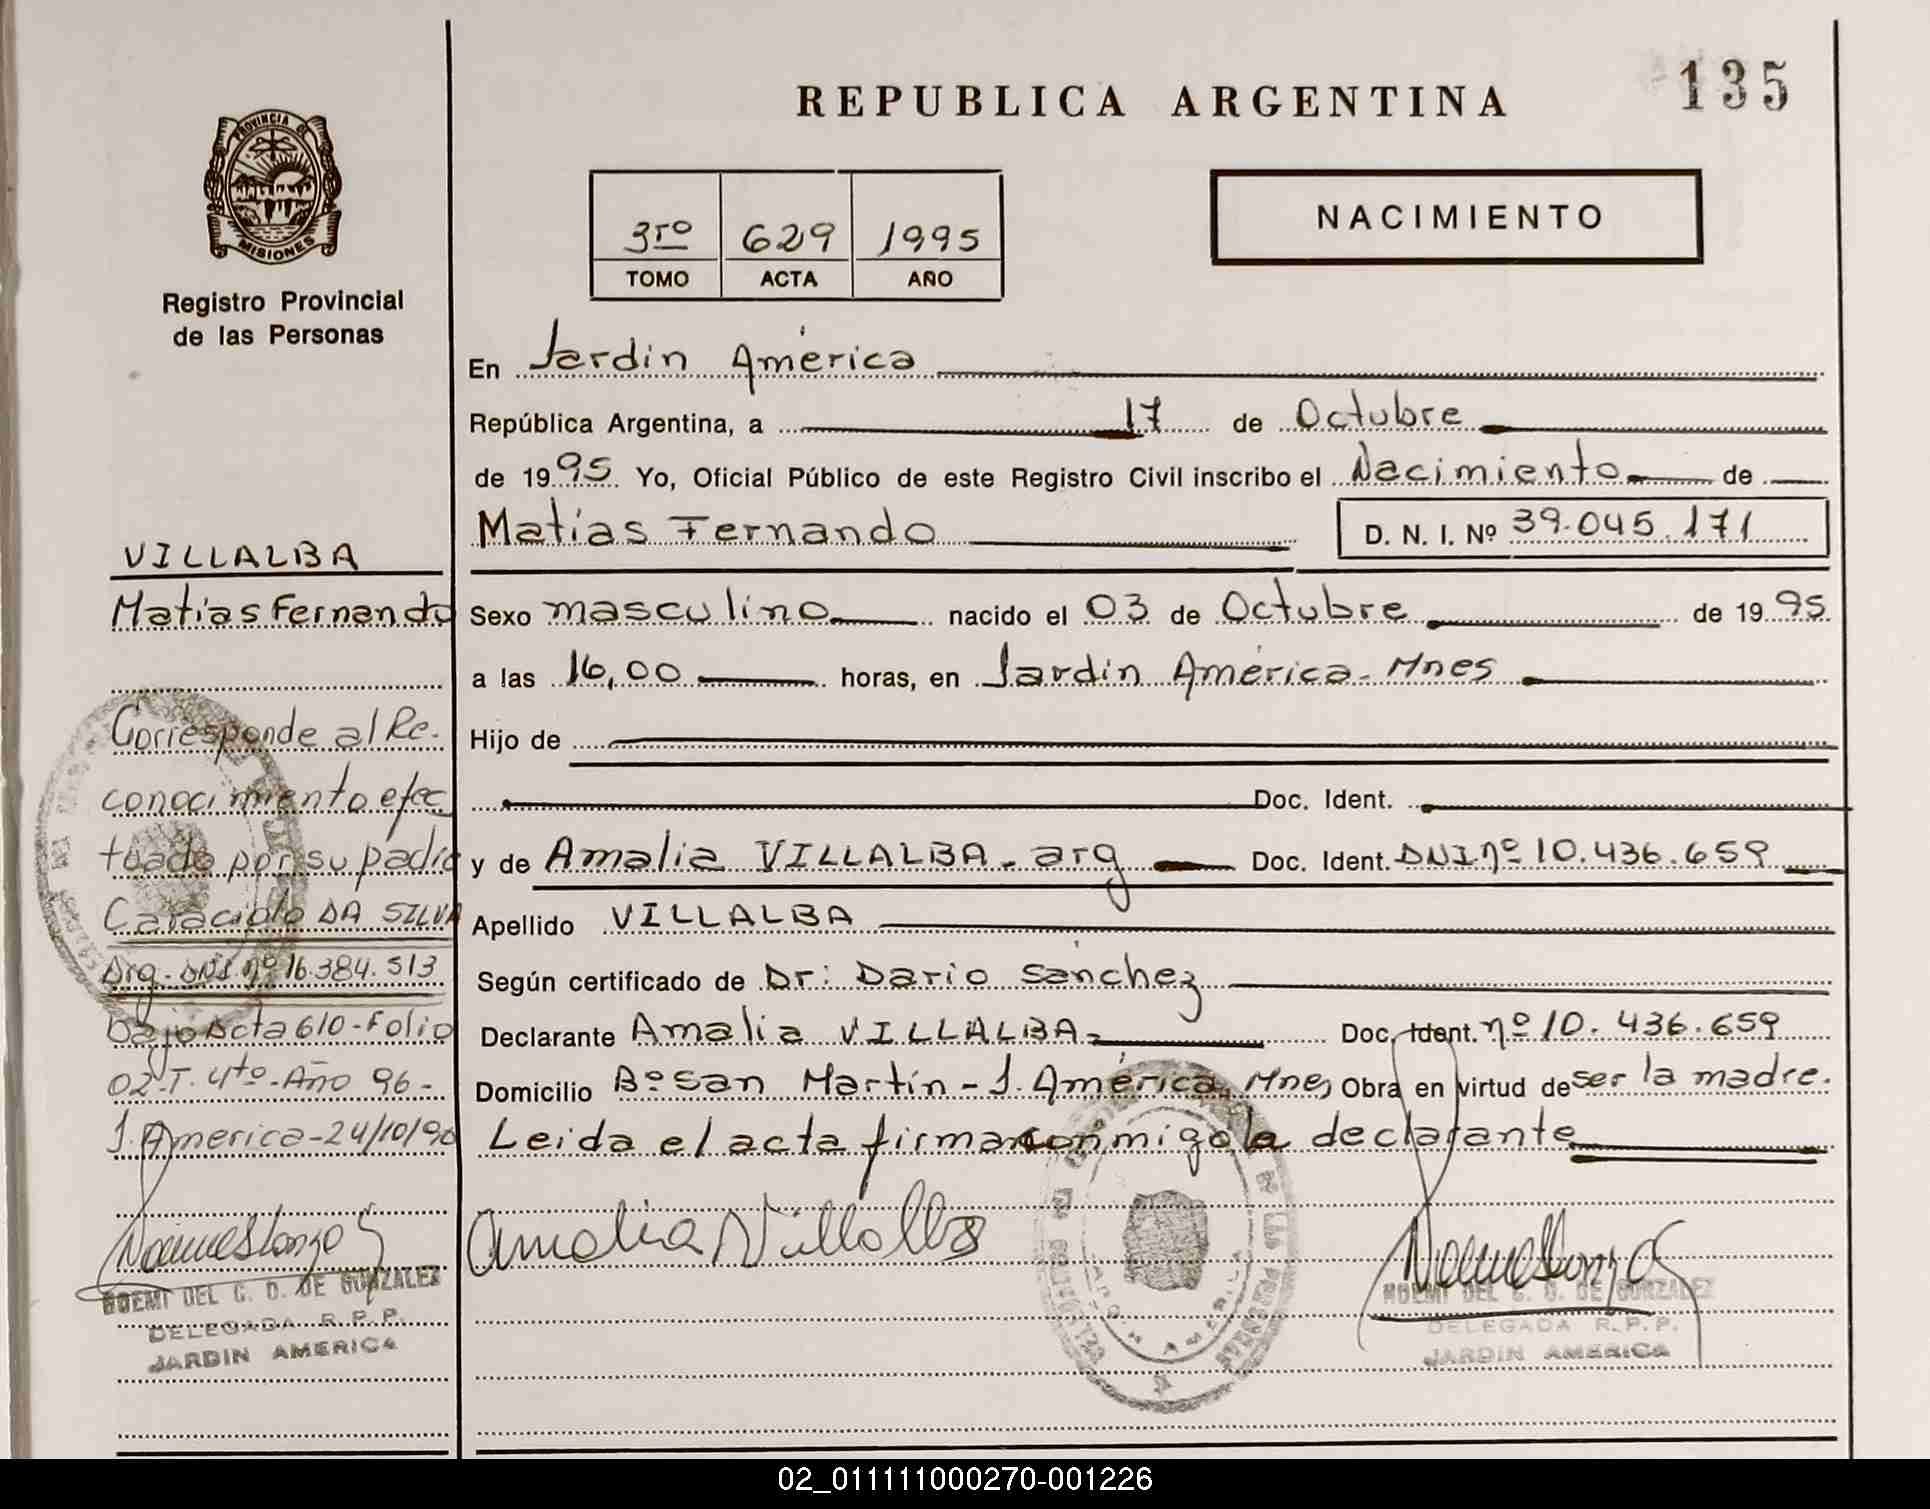 REPUBLICA ARGENTINA
135
PROVINCIA DE
MISIONES
Registro Provincial
de las Personas
3ro 629 1995
TOMO ACTA AÑO
NACIMIENTO
En Jardín América
República Argentina, a 17 de Octubre
de 1995 Yo, Oficial Público de este Registro Civil inscribo el Nacimiento de
Matías Fernando D. N. I. Nº 39.045.171
Sexo masculino nacido el 03 de Octubre de 1995
a las 16,00 horas, en Jardín América - Mnes
Hijo de
Doc. Ident.
y de Amalia VILLALBA - arg Doc. Ident. DNI nº 10.436.659
Apellido VILLALBA
Según certificado de Dr: Darío Sánchez
Declarante Amalia VILLALBA - Doc. Ident. nº 10.436.659
Domicilio Bº San Martín - J. América, Mnes Obra en virtud de ser la madre.
Leída el acta firma conmigo la declarante
Amalia Villalba
NOEMI DEL C. D. DE GONZALEZ
DELEGADA R. P. P.
JARDIN AMERICA
VILLALBA
Matías Fernando
Corresponde al Re-
conocimiento efec
tuado por su padre
DA SILVA
Arg. DNI nº 16.384.513
bajo Acta 610 - Folio
02 - T. 4to - Año 96 -
J. América - 24/10/96
NOEMI DEL C. D. DE GONZALEZ
DELEGADA R. P. P.
JARDIN AMERICA
02_011111000270-001226